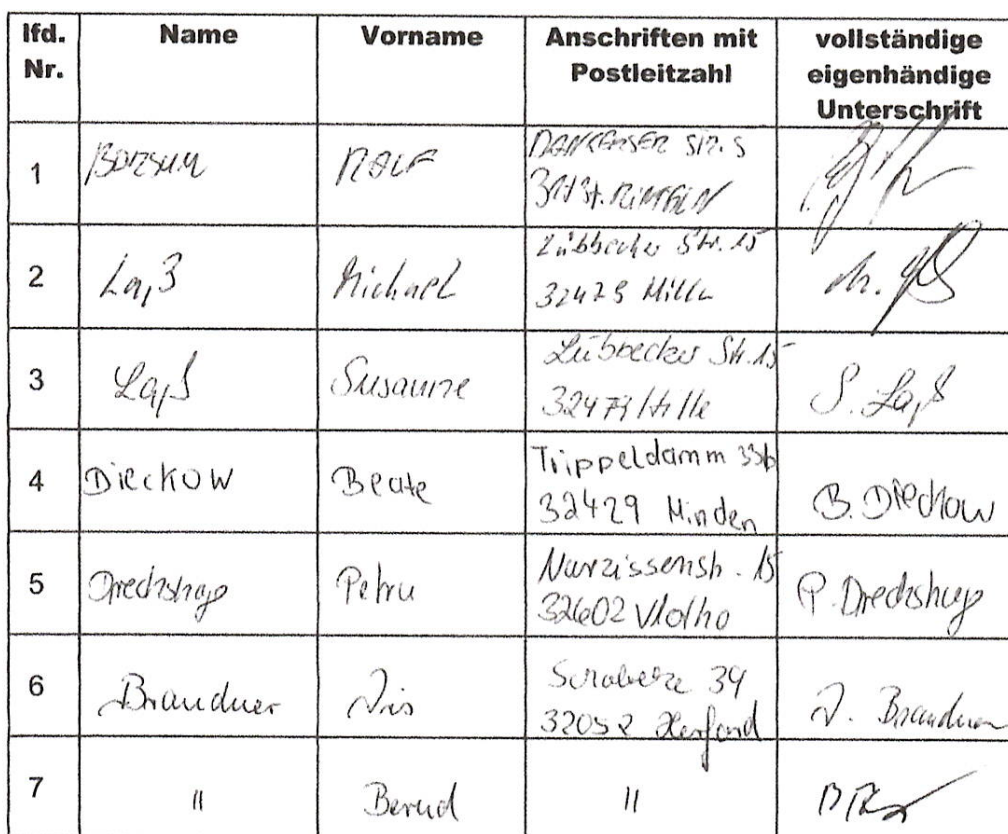 lfd. Nr. Name Vorname Anschriften mit Postleitzahl vollständige eigenhändige Unterschrift
1 Borzum RALF Str. 5
2 Laß Michael Lübbecker Str. 15
32479 Hille
3 Laß Susanne Lübbecker Str. 15
32479 Hille S. Laß
4 Dieckow Beate Trippeldamm 33b
32429 Minden B. Dieckow
5 Petra Narzissenstr. 15
32602 Vlotho P.
6 Brandner Iris 39
32052 Herford I. Brandner
7 " Bernd "